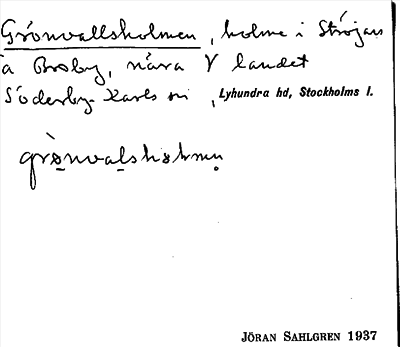 Grönvallsholmen, holme i Ströjan
å Broby, nära V landet
Söderby-Karls sn, Lyhundra hd, Stockholms l.
grònvalshòlmen
JÖRAN SAHLGREN 1937